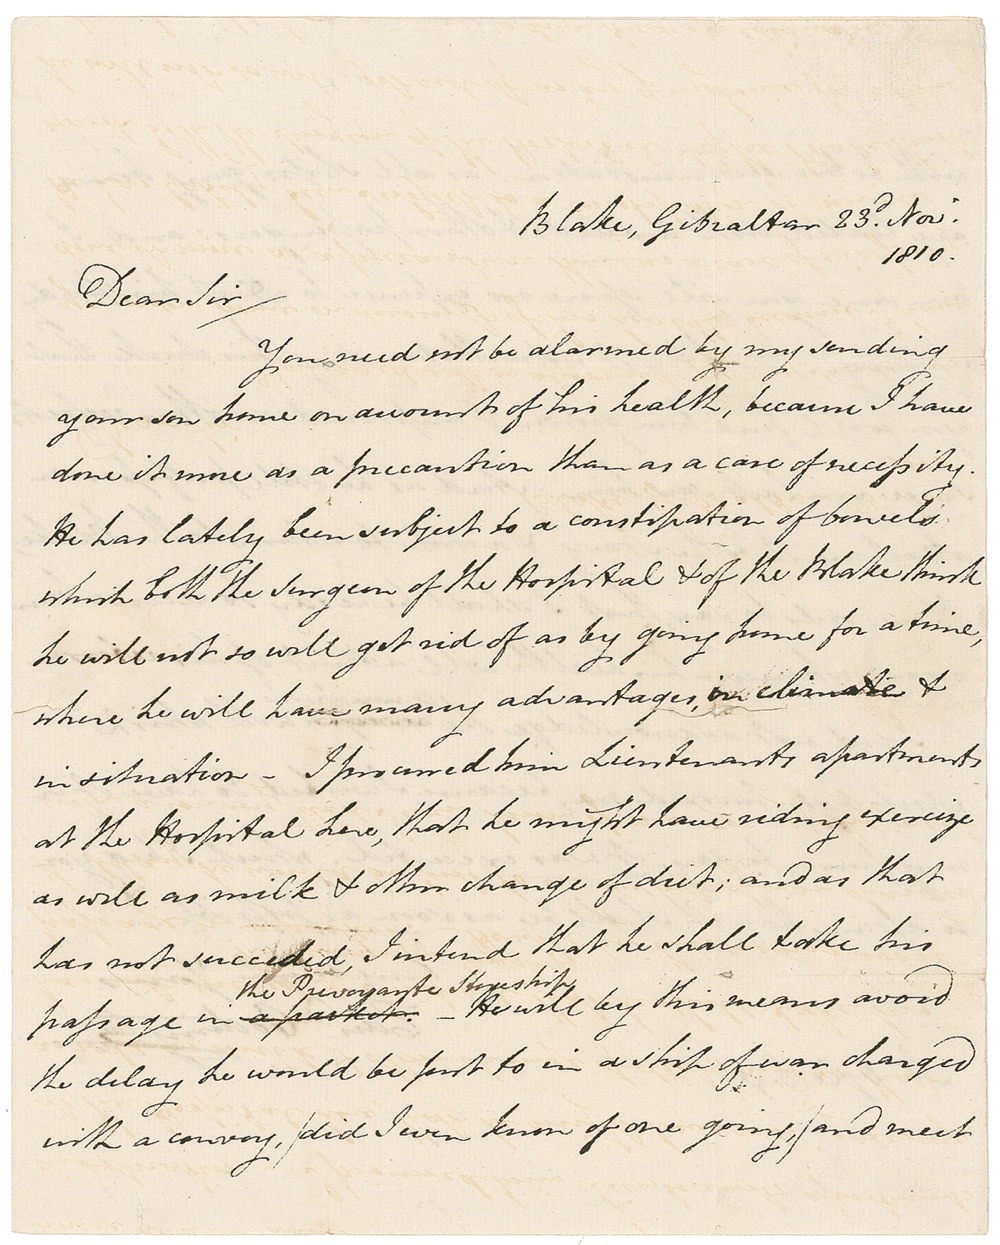 Blake, Gibraltar 23d. Nov.
1810.
Dear Sir
You need not be alarmed by my sending
your son home on account of his health, because I have
done it more as a precaution than as a case of necessity.
He has lately been subject to a constipation of bowels
which both the surgeon of the Hospital & of the Blake think
he will not so well get rid of as by going home for a time,
where he will have many advantages, in climate &
in situation - I procured him Lieutenants apartments
at the Hospital here, that he might have riding exercize
as well as milk & other change of diet; and as that
has not succeeded, I intend that he shall take his
the Prevoyante Storeship
passage in a packet. - He will by this means avoid
the delay he would be put to in a ship of war charged
with a convoy, (did I even know of one going,) and meet